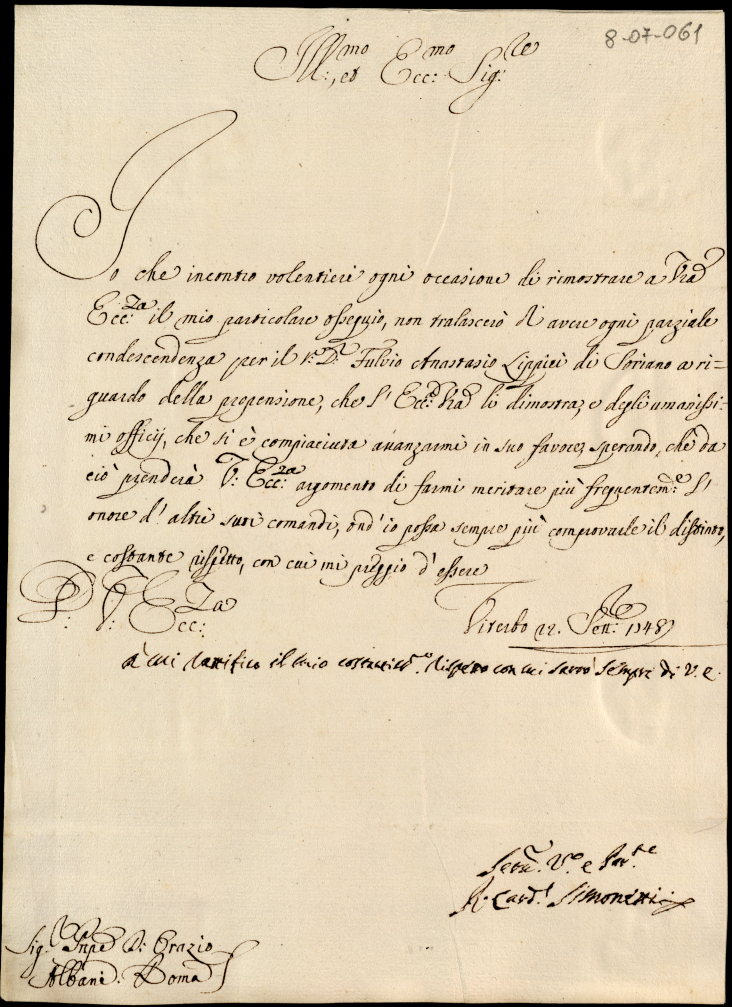 8-07-061
Ill:mo, et Ecc:mo Sig:re
Io che incontro volentieri ogni occasione di rimostrare a Vra
Ecc:za il mio particolare ossequio, non tralascerò di avere ogni parziale
condescendenza per il Fulvio Anastasio Lippici di Soriano a ri=
guardo della propensione, che l'Ecc:za Vra li dimostra, e degli umanissi-
mi officij, che si è compiaciuta avanzarmi in suo favore, sperando, che da
ciò prenderà V: Ecc:za argomento di farmi meritare più frequentem:e l'
onore d'altri suoi comandi, ond'io possa sempre più comprovarle il distinto,
e costante rispetto, con cui mi preggio d'essere
D: V: Ecc:za
Viterbo 22. Sett:re 1748
à cui rattifico il mio rispetto con cui sarrò sempre di V. E.
Ser:re V:o e
R. Card:l Simonetti
Sig:r Pnpe D: Orazio
Albani. Roma